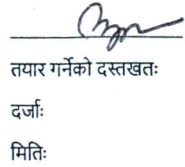 तयार गर्नेको दस्तखतः
दर्जाः
मितिः